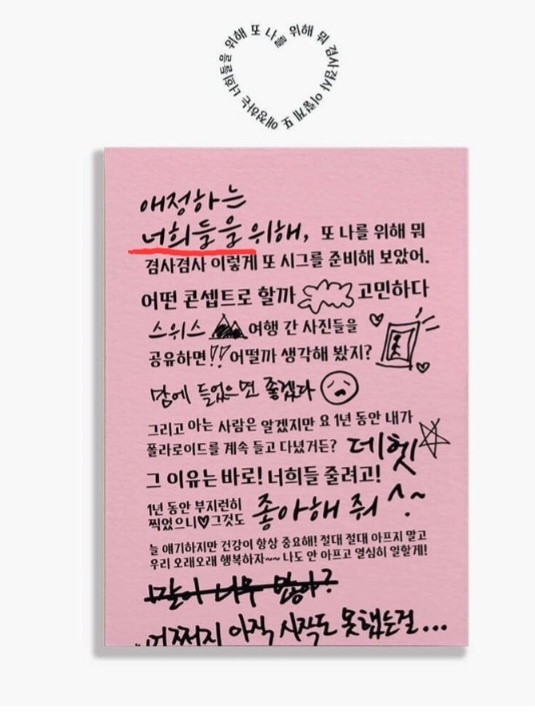 애정하는 너희들을 위해 또 나를 위해 뭐 겸사겸사 이렇게 또
애정하는
너희들을 위해, 또 나를 위해 뭐
겸사겸사 이렇게 또 시그를 준비해 보았어.
어떤 콘셉트로 할까 고민하다
스위스 여행 간 사진들을
공유하면!! 어떨까 생각해 봤지?
맘에 들었으면 좋겠다
그리고 아는 사람은 알겠지만 요 1년 동안 내가
폴라로이드를 계속 들고 다녔거든? 데헷
그 이유는 바로! 너희들 줄려고!
1년 동안 부지런히
찍었으니♡그것도 좋아해 줘 ^.~
늘 얘기하지만 건강이 항상 중요해! 절대 절대 아프지 말고
우리 오래오래 행복하자~~ 나도 안 아프고 열심히 일할게!
말이 너무 많아?
어쩌지 아직 시작도 못했는걸...